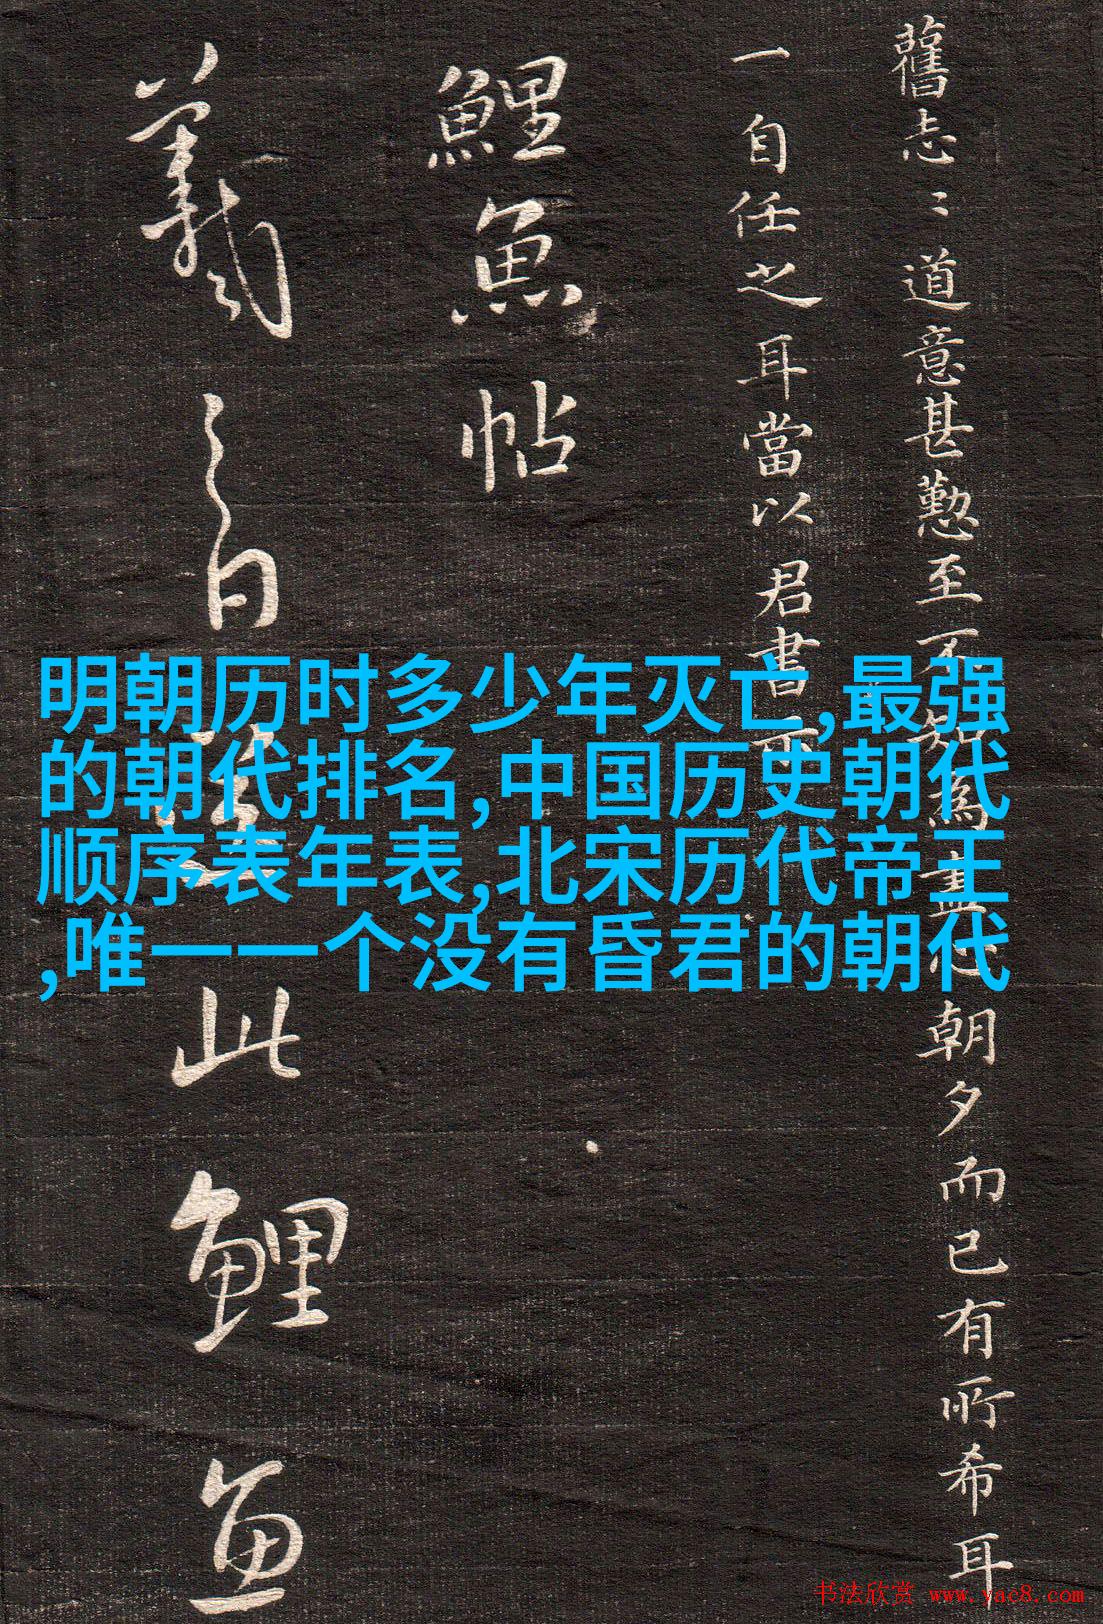 舊志〻道意甚懃至不知為盡朝夕而已有所希耳
一自任之耳當以君書示
鯉魚帖
羲之白送此鯉魚
明朝历时多少年灭亡,最强
的朝代排名,中国历史朝代
顺序表年表,北宋历代帝王
,唯一一个没有昏君的朝代
书法欣赏 www.yac8.com